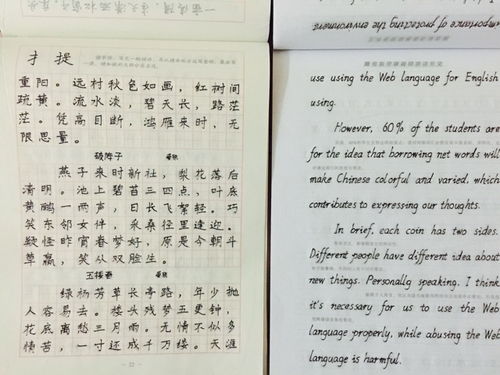 扌 提
重阳。远村秋色如画，红树间
疏黄。流水淡，碧天长，路茫
茫。凭高目断，鸿雁来时，无
限思量。
破阵子 晏殊
燕子来时新社，梨花落后
清明。池上碧苔三四点，叶底
黄鹂一两声，日长飞絮轻。巧
笑东邻女伴，采桑径里逢迎。
疑怪昨宵春梦好，原是今朝斗
草赢，笑从双脸生。
玉楼春 晏殊
绿杨芳草长亭路，年少抛
人容易去。楼头残梦五更钟，
花底离愁三月雨。无情不似多
情苦，一寸还成千万缕。天涯
of protecting the
use using the Web language for English
using.
However, 60% of the students are
for the idea that borrowing net words will
make Chinese colorful and varied, which
contributes to expressing our thoughts.
In brief, each coin has two sides.
Different people have different idea about
new things. Personally speaking, I think
it's necessary for us to use the Web
language properly, while abusing the Web
language is harmful.